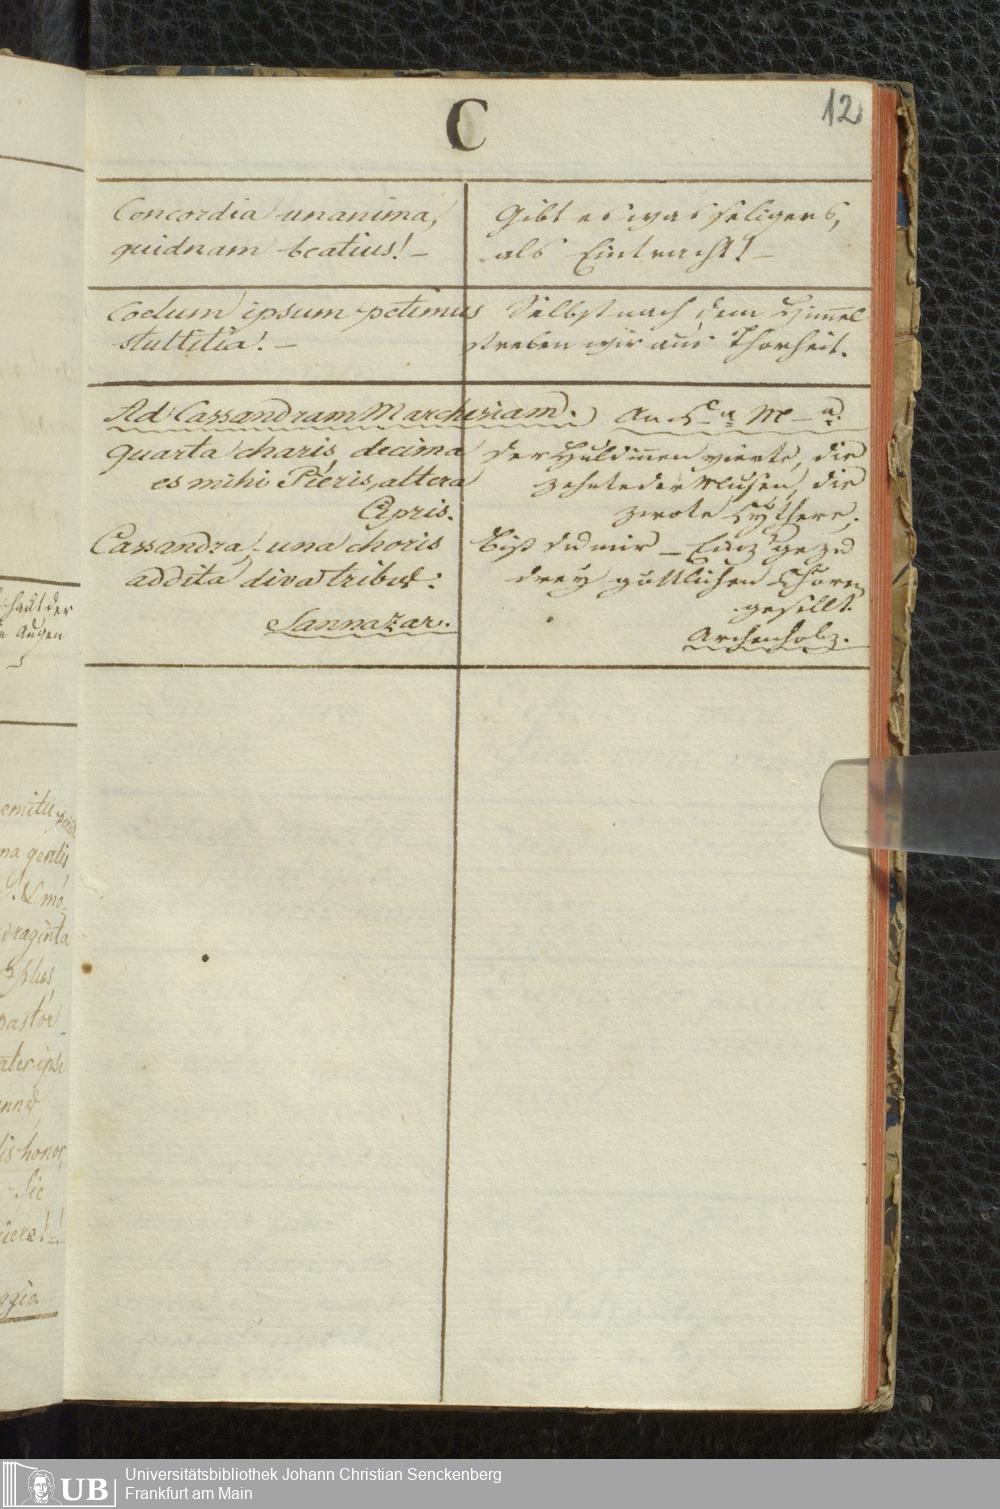 12
C
Concordia unanima,
quidnam beatius! –
Gibt es was seligers,
als Eintracht! –
Coelum ipsum petimus
stultitia. –
Selbst nach dem Himmel
streben wir aus Thorheit.
Ad Cassandram Marchesiam.
quarta charis, decima
es mihi Pieris, altera
Cipris.
Cassandra, una choris
addita diva tribus:
Sannazar.
An C – a M – a.
Der Huldinnen vierte, die
zehnte der Musen, die
zwote Cythere,
Bist du mir –
drey göttlichen Choren
gesellt.
Archenholz.
schaut der
Augen
emitu
na gentis
& mo-
draginta
pastor
ater ipse
lis honor,
Sic
ggio
UB
Universitätsbibliothek Johann Christian Senckenberg
Frankfurt am Main